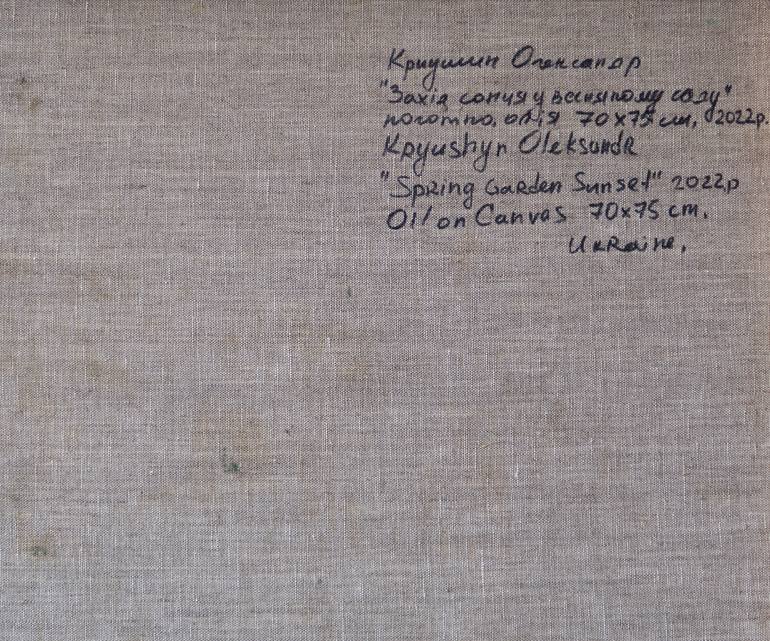 Криушин Олександр
"Захід сонця у весняному саду"
полотно, олія 70x75 см, 2022р.
Kpyushyn Oleksandr
"Spring Garden Sunset" 2022р
Oil on Canvas 70x75 cm.
Ukraine,